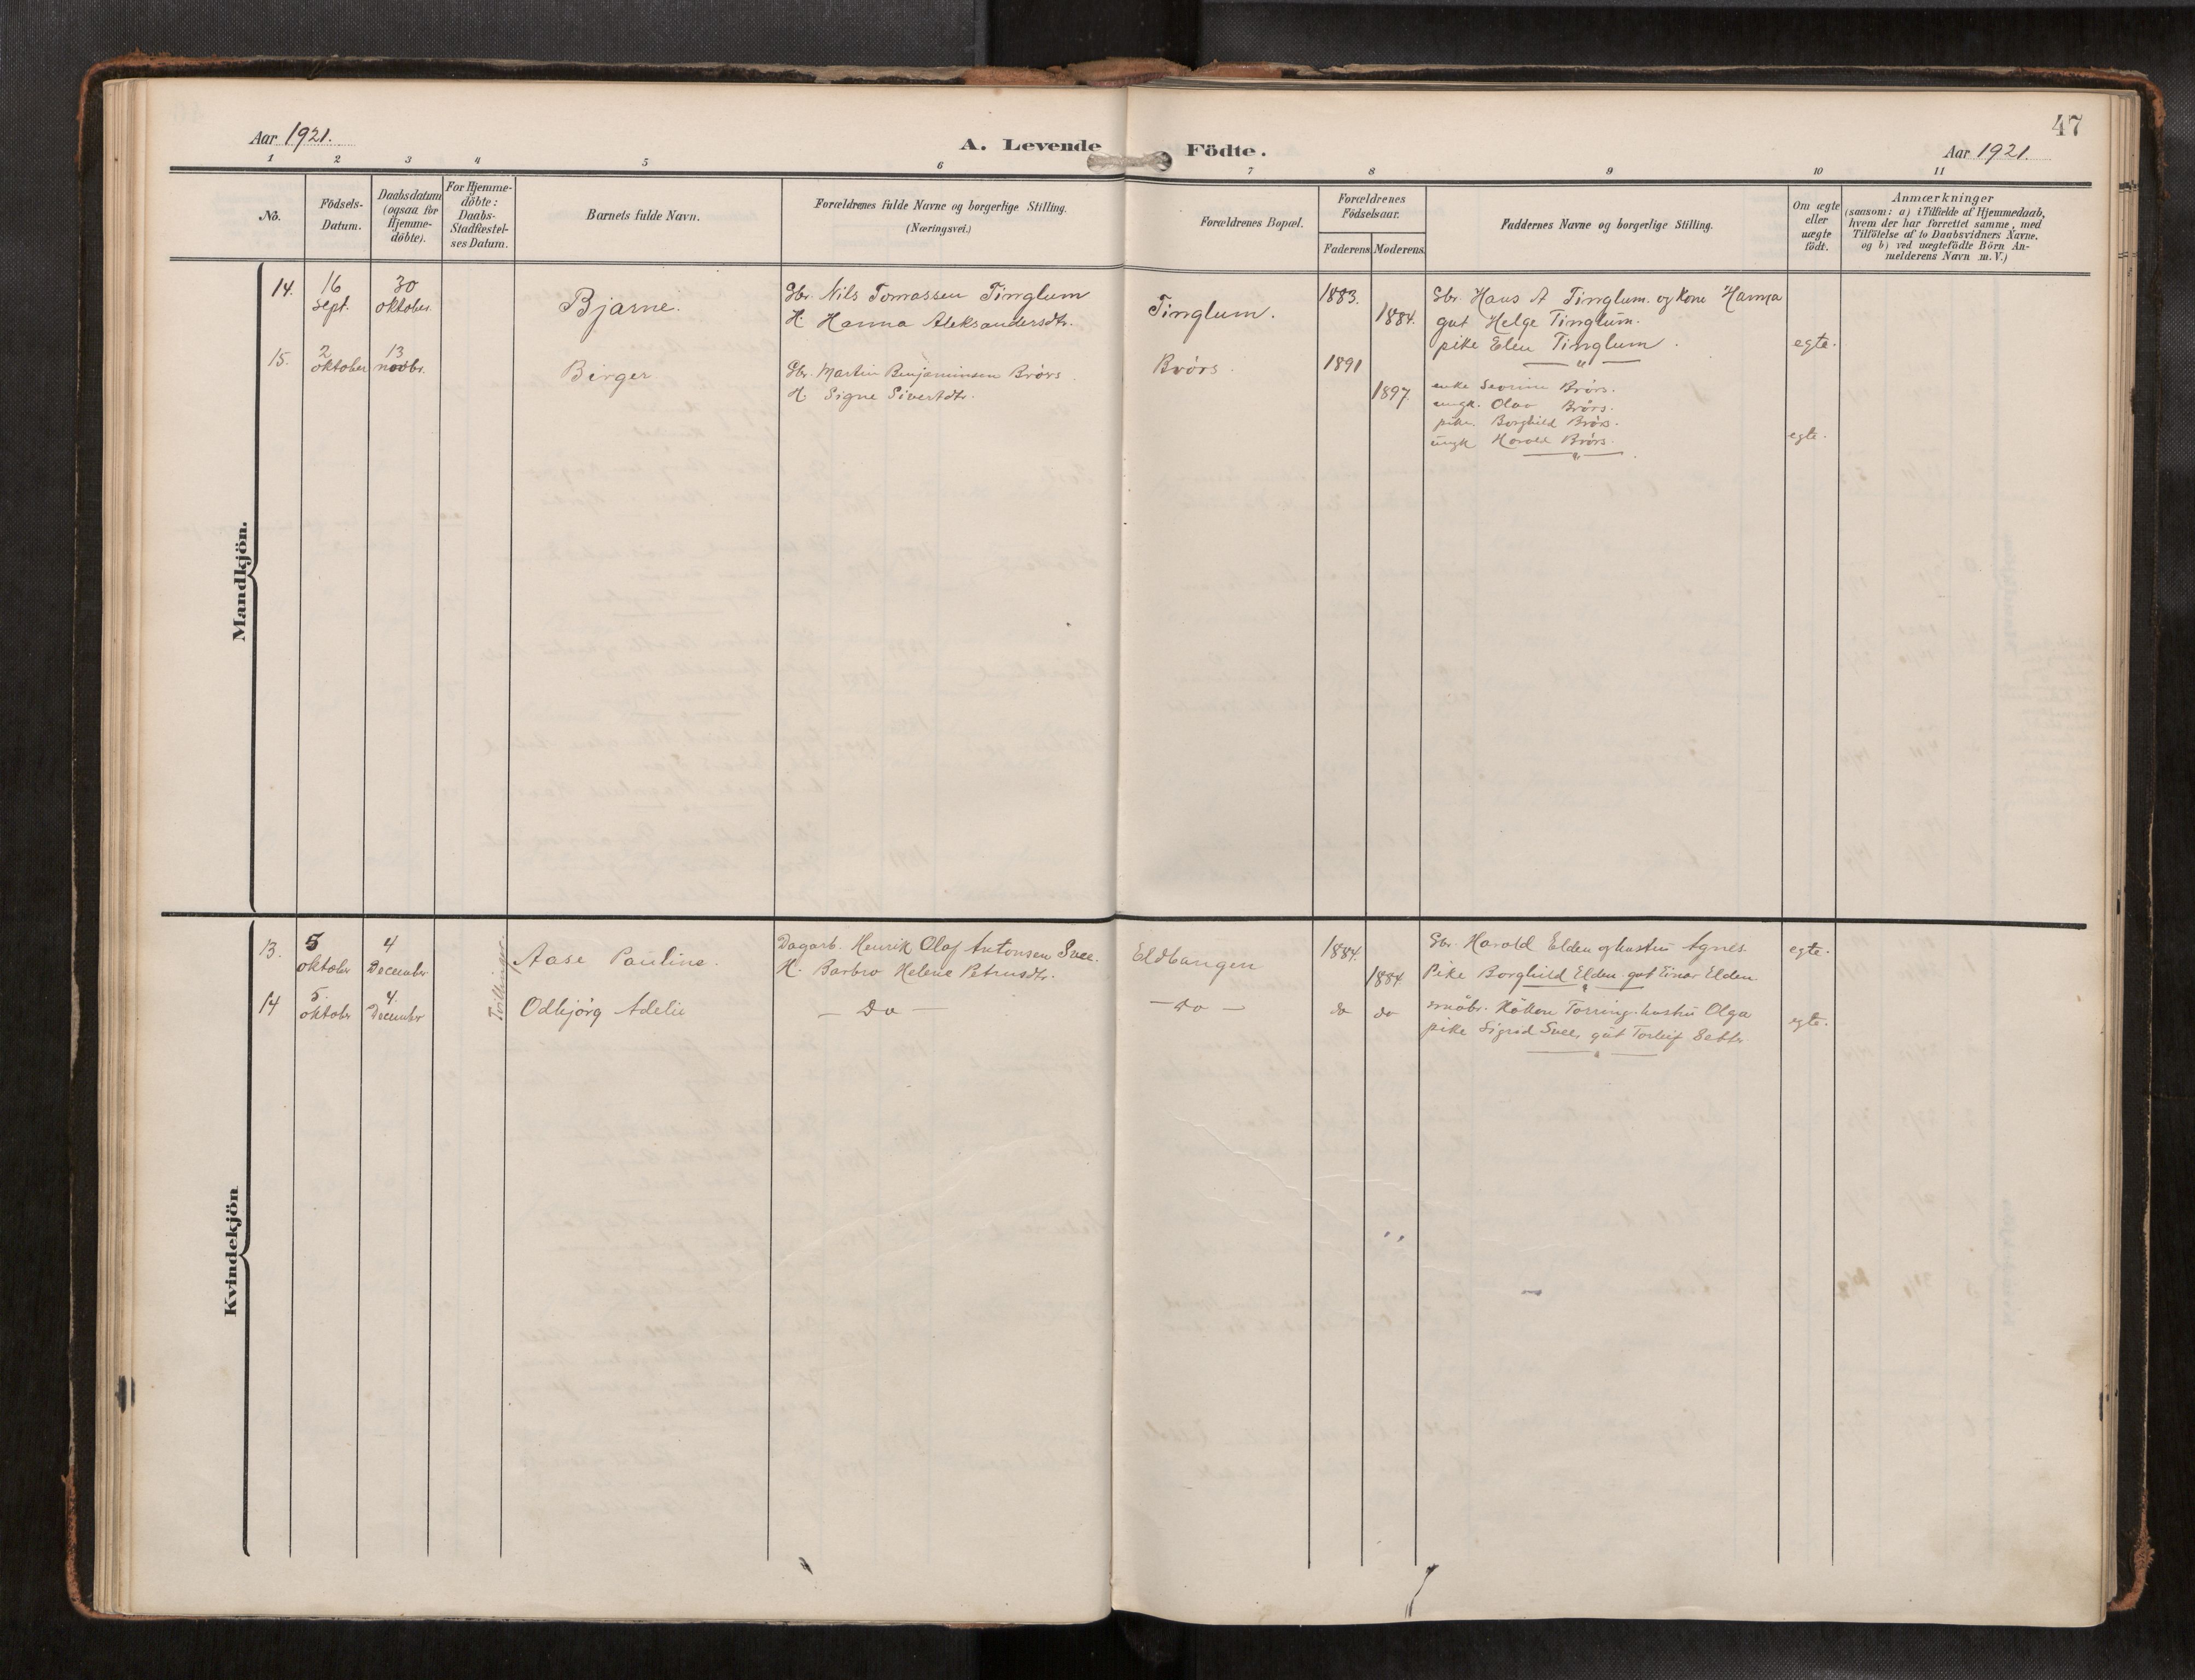 47
Aar 1921.
A. Levende Födte.
Aar 1921.
1 2 3 4 5 6 7 8 9 10 11
No.
Födsels-
Datum.
Daabsdatum
(ogsaa for
Hjemme-
döbte).
For Hjemme-
döbte:
Daabs-
Stadfæstel-
ses Datum.
Barnets fulde Navn.
Forældrenes fulde Navne og borgerlige Stilling.
(Næringsvei.)
Forældrenes Bopæl.
Forældrenes
Födselsaar.
Faderens Moderens
Faddernes Navne og borgerlige Stilling.
Om ægte
eller
uægte
födt.
Anmærkninger
(saasom: a) i Tilfælde af Hjemmedaab,
hvem der har forrettet samme, med
Tilföielse af to Daabsvidners Navne.
og b) ved uægtefödte Börn An-
melderens Navn m.V.)
Mandkjön.
14.
16
Sept.
30
oktober.
Bjarne.
Gbr. Nils Tomassen Tinglum
H. Hanna Aleksandersdtr.
Tinglum.
1883.
1884.
Gbr. Hans A Tinglum. og Kone Hanna
gut Helge Tinglum.
pike Elen Tinglum.
egte.
15.
2
oktober
13
novbr.
Birger
Gbr. Martin Benjaminsen Brörs.
H. Signe Sivertdtr.
Brörs.
1891
1897.
enke Brörs.
ungk. Olav Brörs.
pike. Borghild Brörs.
ungk Harald Brörs.
egte.
Kvindekjön
13.
5
oktober
4
December
Tvillinger.
Aase Pauline.
Dagarb. Henrik Olaf Antonsen Svee.
H. Barbro Helene Petrusdtr.
Eldvangen
1884.
1884
Gbr. Harald Elden og hustru Agnes
Pike Borghild Elden. gut Einar Elden
egte.
14
5.
oktober
4.
December
Odbjörg Adelie
— Do —
— Do —
do do
småbr. Håkon Tørring. hustru Olga
pike Sigrid Svee, gut Torleif
egte.